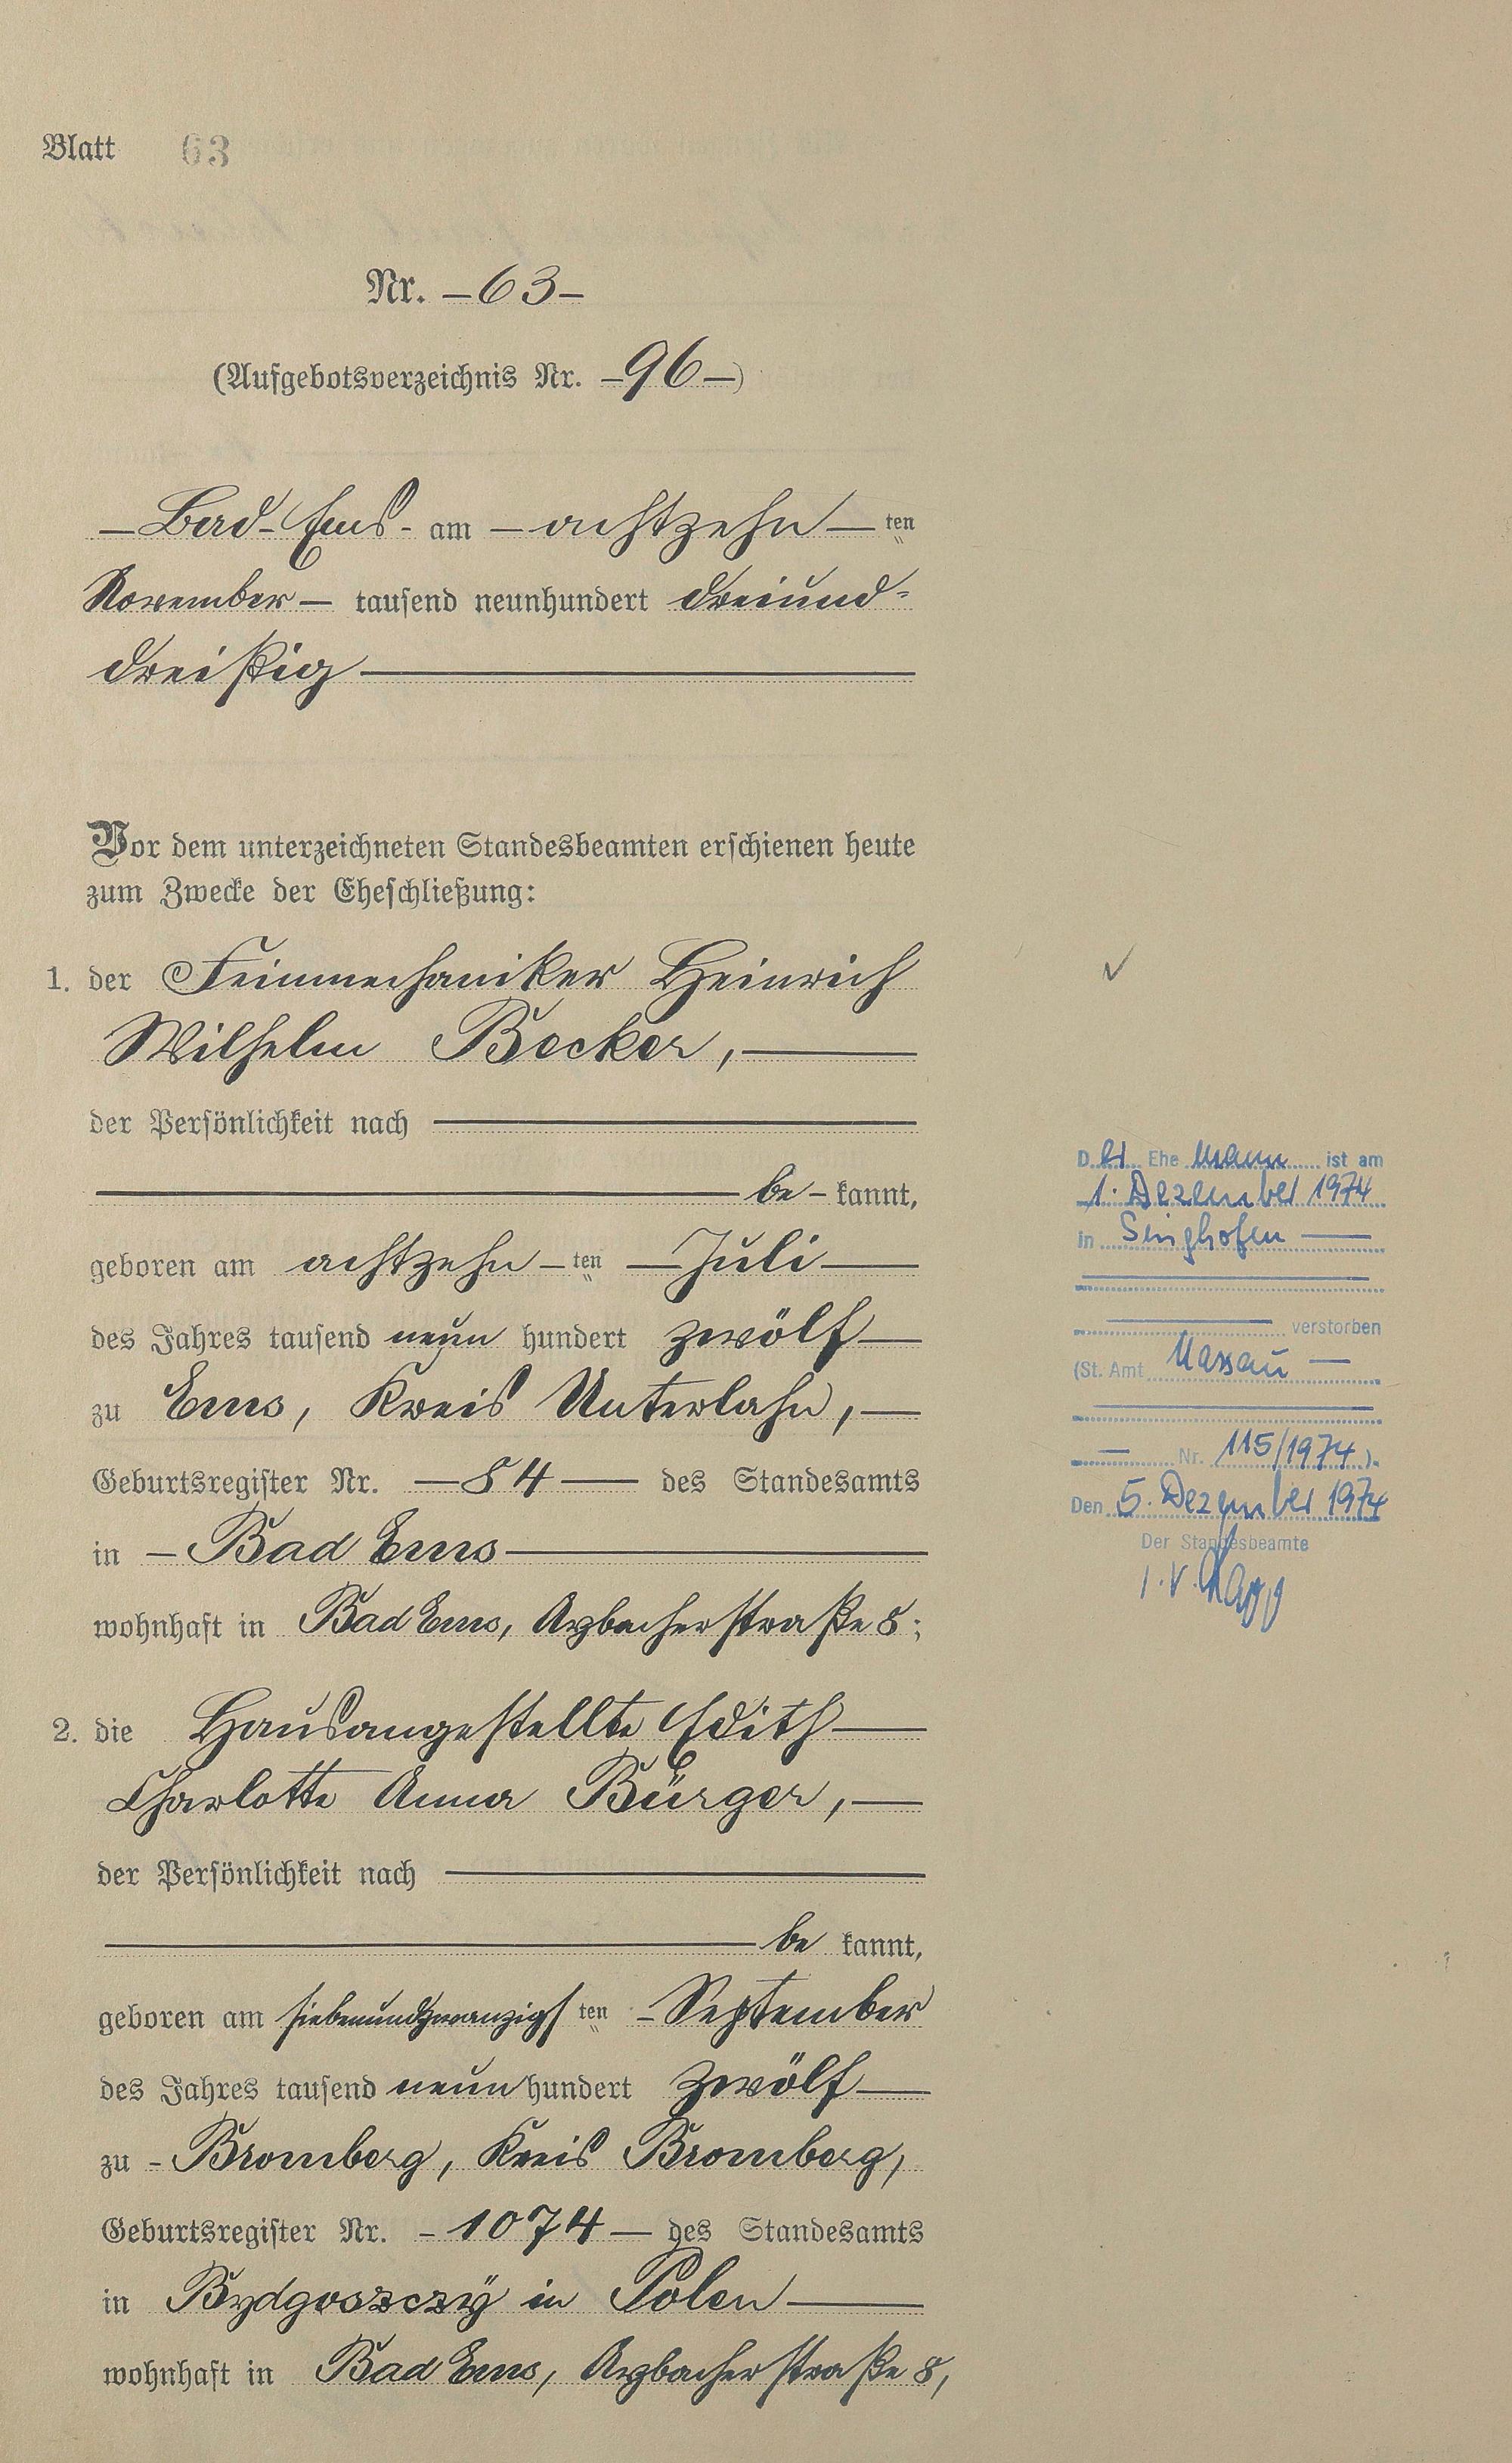 Blatt 63
Nr. – 63 –
(Aufgebotsverzeichnis Nr. – 96 –)
– Bad-Ems - am – achtzehn – ten
November – tausend neunhundert dreiund-
dreißig —
Vor dem unterzeichneten Standesbeamten erschienen heute
zum Zwecke der Eheschließung:
1. der Feinmechaniker Heinrich
Wilhelm Becker, —
der Persönlichkeit nach —
— be – kannt,
geboren am achtzehn – ten — Juli —
des Jahres tausend neun hundert zwölf —
zu Ems, Kreis Unterlahn, —
Geburtsregister Nr. — 84 — des Standesamts
in – Bad Ems —
wohnhaft in Bad Ems, Arzbacherstraße 8;
2. die Hausangestellte Edith —
Charlotte Anna Bürger, —
der Persönlichkeit nach —
— be kannt,
geboren am siebenundzwanzigs ten – September
des Jahres tausend neun hundert zwölf —
zu – Bromberg, Kreis Bromberg,
Geburtsregister Nr. – 1074 — des Standesamts
in Bydgoszczÿ in Polen —
wohnhaft in Bad Ems, Arzbacherstraße 8,
D er Ehe mann ist am
1. Dezember 1974
in Singhofen —
— verstorben
(St. Amt Nassau —
— Nr. 115/1974 ).
Den 5. Dezember 1974
Der Standesbeamte
I.V.